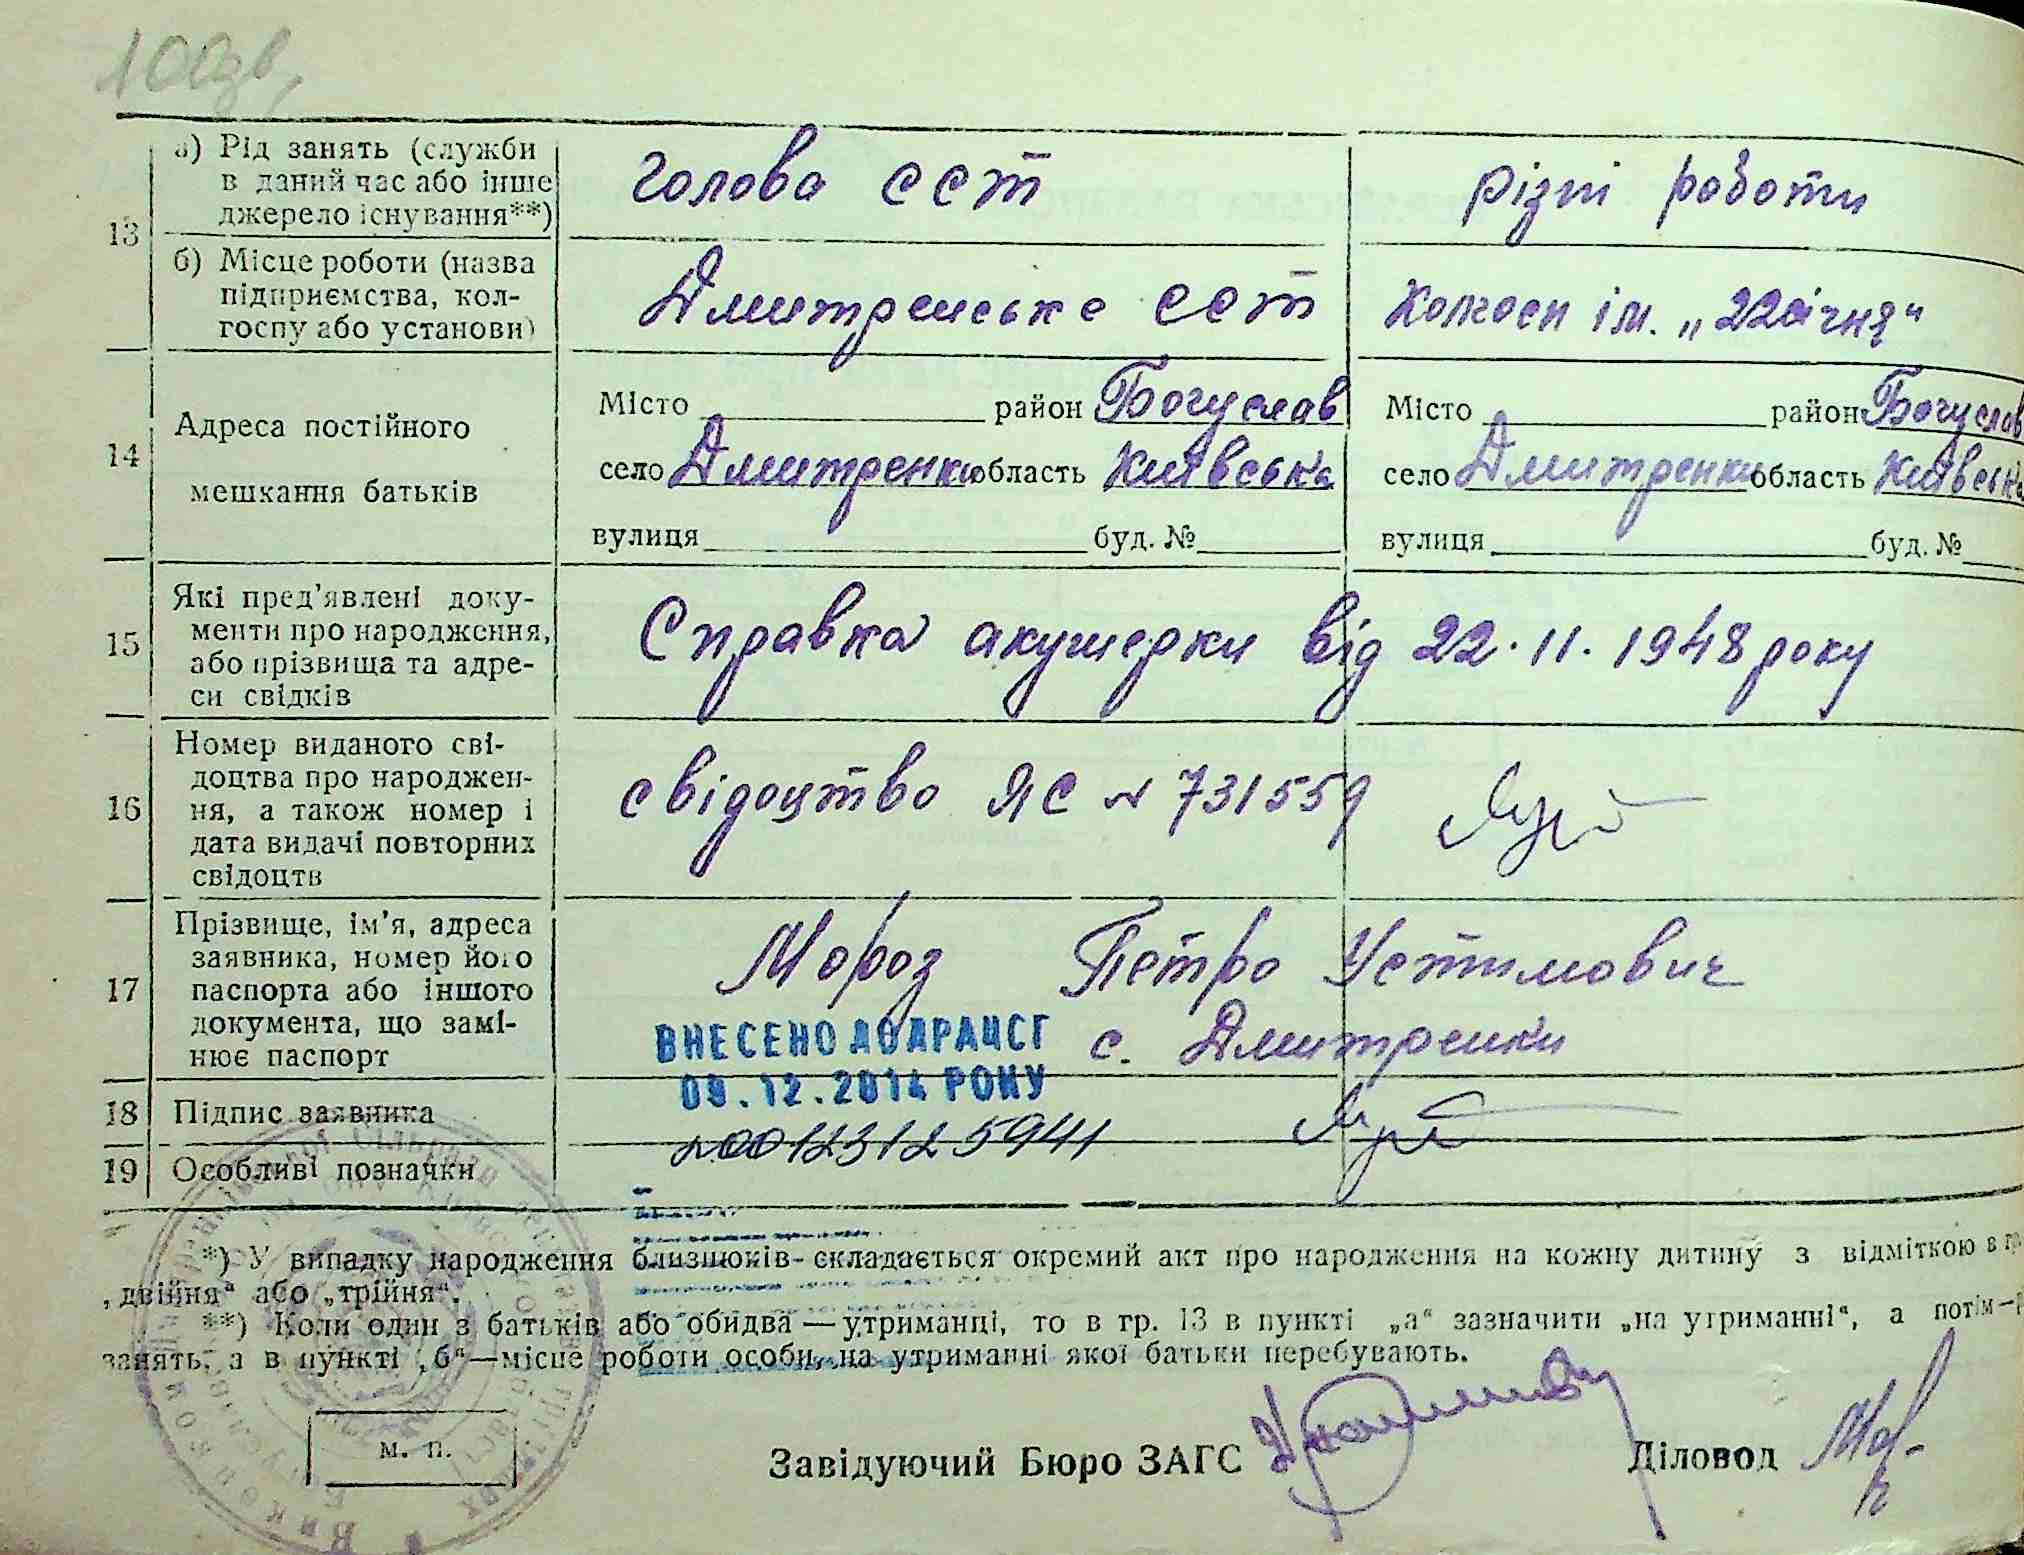 100зв,
13
а) Рід занять (служби
в даний час або інше
джерело існування**)
голова ССТ
різні роботи
б) Місце роботи (назва
підприємства, кол-
госпу або установи)
Дмитренське ССТ
Колгосп ім. „22 січня“
14
Адреса постійного
мешкання батьків
Місто район Богуслав
село Дмитренки область Київська
вулиця буд. №
Місто район Богуслав
село Дмитренки область Київська
вулиця буд. №
15
Які пред’явлені доку-
менти про народження,
або прізвища та адре-
си свідків
Справка акушерки від 22.11.1948 року
16
Номер виданого сві-
доцтва про народжен-
ня, а також номер і
дата видачі повторних
свідоцтв
свідоцтво ЯС N 731559
17
Прізвище, ім’я, адреса
заявника, номер його
паспорта або іншого
документа, що замі-
нює паспорт
Мороз Петро Устимович
с. Дмитренки
ВНЕСЕНО ДО ДРАЦСГ
09.12.2014 РОКУ
18
Підпис заявника
N00123125941
19
Особливі позначки
*) У випадку народження близнюків складається окремий акт про народження на кожну дитину з відміткою в
„двійня“ або „трійня“.
**) Коли один з батьків або обидва — утриманці, то в гр. 13 в пункті „а“ зазначити „на утриманні“, а потім —
занять, а в пункті „б“ — місце роботи особи, на утриманні якої батьки перебувають.
м. п.
Завідуючий Бюро ЗАГС
Діловод